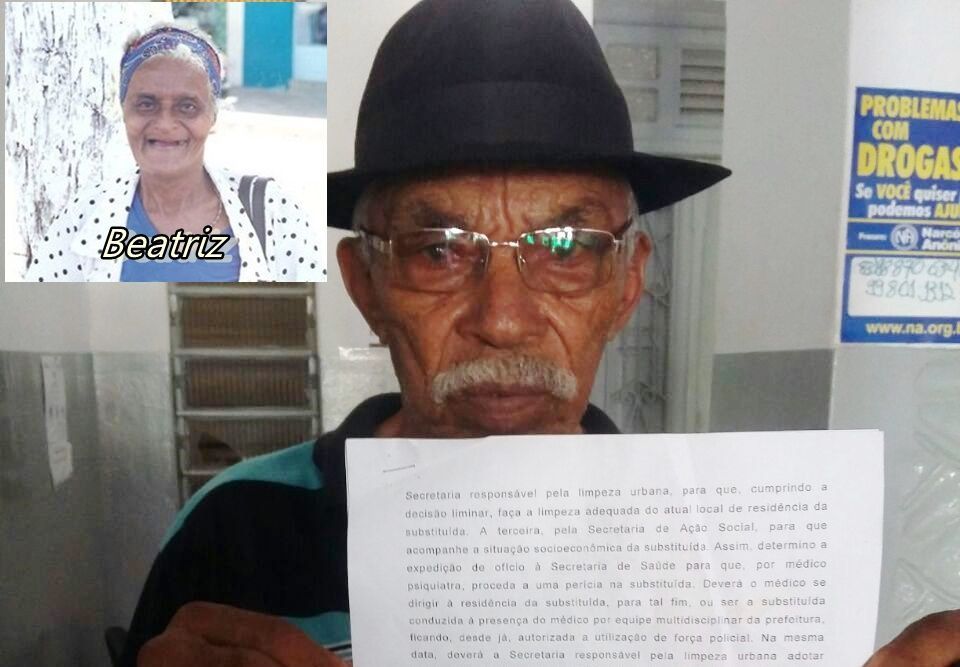 Beatriz
PROBLEMAS
COM
DROGAS
Se VOCÊ quiser
podemos
NA
www.na.org.
Secretaria responsável pela limpeza urbana, para que, cumprindo a
decisão liminar, faça a limpeza adequada do atual local de residência da
substituída. A terceira, pela Secretaria de Ação Social, para que
acompanhe a situação socioeconômica da substituída. Assim, determino a
expedição de ofício à Secretaria de Saúde para que, por médico
psiquiatra, proceda a uma perícia na substituída. Deverá o médico se
dirigir à residência da substituída, para tal fim, ou ser a substituída
conduzida à presença do médico por equipe multidisciplinar da prefeitura,
ficando, desde já, autorizada a utilização de força policial. Na mesma
data, deverá a Secretaria responsável pela limpeza urbana adotar